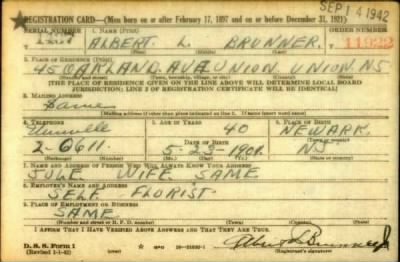 SEP 14 1942
REGISTRATION CARD—(Men born on or after February 17, 1897 and on or before December 31, 1921)
SERIAL NUMBER 1. NAME (Print) ORDER NUMBER
ALBERT L. BRUNNER. 11922
(First) (Middle) (Last)
2. PLACE OF RESIDENCE (Print)
45 OAKLAND AVE UNION UNION. NJ
(Number and street) (Town, township, village, or city) (County) (State)
[THE PLACE OF RESIDENCE GIVEN ON THE LINE ABOVE WILL DETERMINE LOCAL BOARD
JURISDICTION; LINE 2 OF REGISTRATION CERTIFICATE WILL BE IDENTICAL]
3. MAILING ADDRESS
Same
[Mailing address if other than place indicated on line 2. If same insert word same]
4. TELEPHONE 5. AGE IN YEARS 6. PLACE OF BIRTH
Unville 40 NEWARK
DATE OF BIRTH
2-0611 5-23-1902 NJ
(Exchange) (Number) (Mo.) (Day) (Yr.) (State or country)
7. NAME AND ADDRESS OF PERSON WHO WILL ALWAYS KNOW YOUR ADDRESS
JULE WIFE SAME
8. EMPLOYER'S NAME AND ADDRESS
SELF FLORIST
9. PLACE OF EMPLOYMENT OR BUSINESS
SAME
(Number and street or R. F. D. number) (Town) (County) (State)
I AFFIRM THAT I HAVE VERIFIED ABOVE ANSWERS AND THAT THEY ARE TRUE.
D. S. S. Form 1
(Revised 1-1-42) 16—21630-1 Albert L Brunner
(Registrant's signature)